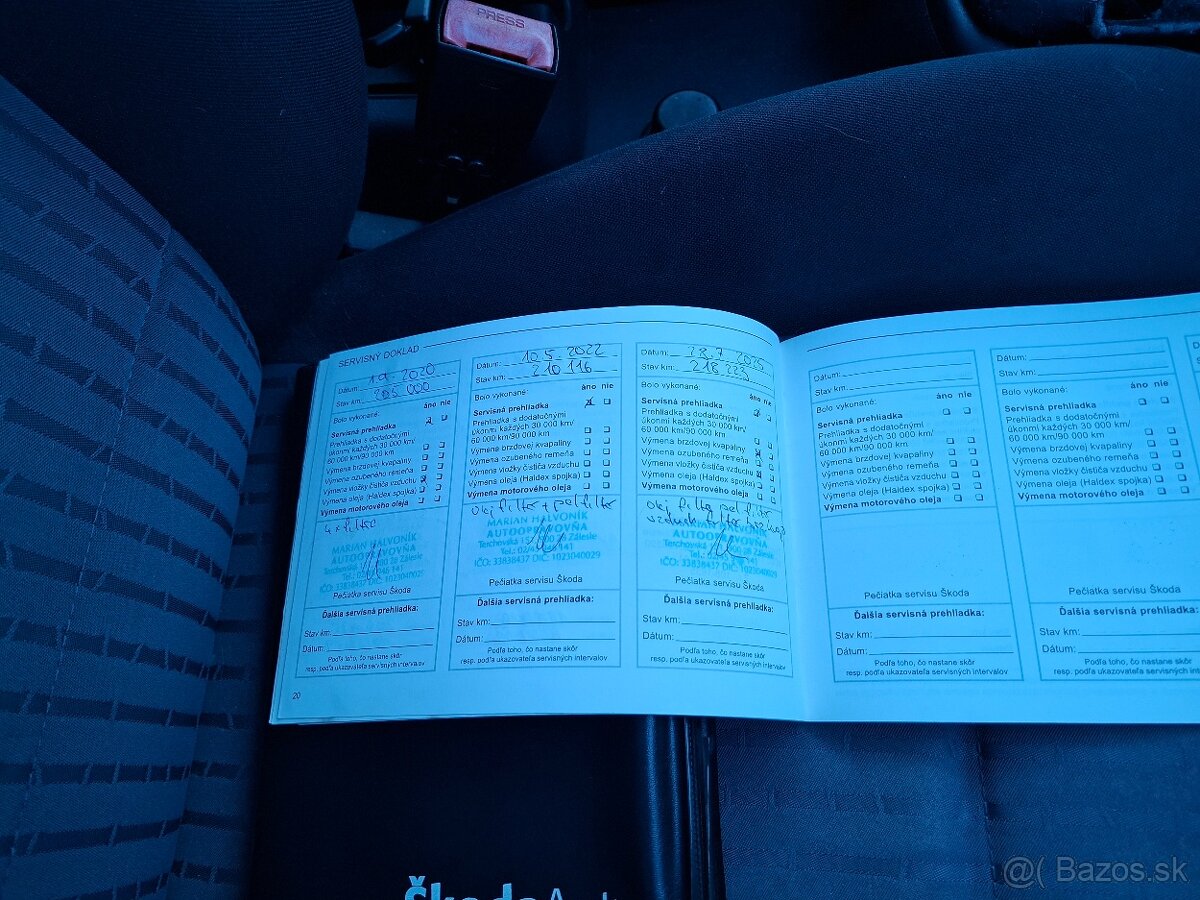 PRESS
SERVISNÝ DOKLAD
Dátum: 1.9. 2020
Stav km: 205 000
Bolo vykonané:
áno nie
Servisná prehliadka
Prehliadka s dodatočnými
úkonmi každých 30 000 km/
60 000 km/90 000 km
Výmena brzdovej kvapaliny
Výmena ozubeného remeňa
Výmena vložky čističa vzduchu
Výmena oleja (Haldex spojka)
Výmena motorového oleja
4 x filter
MARIAN HALVONÍK
AUTOOPRAVOVŇA
IČO: 33838437 DIČ: 1023040029
Pečiatka servisu Škoda
Ďalšia servisná prehliadka:
Stav km:
Dátum:
Podľa toho, čo nastane skôr
resp. podľa ukazovateľa servisných intervalov
20
Dátum: 10.5. 2022
Stav km: 210 116
Bolo vykonané:
áno nie
Servisná prehliadka
Prehliadka s dodatočnými
úkonmi každých 30 000 km/
60 000 km/90 000 km
Výmena brzdovej kvapaliny
Výmena ozubeného remeňa
Výmena vložky čističa vzduchu
Výmena oleja (Haldex spojka)
Výmena motorového oleja
olej filter + pel filter
MARIAN HALVONÍK
AUTOOPRAVOVŇA
Terchovská 00 28 Zálesie
Tel.: 02/45 141
IČO: 33838437 DIČ: 1023040029
Pečiatka servisu Škoda
Ďalšia servisná prehliadka:
Stav km:
Dátum:
Podľa toho, čo nastane skôr
resp. podľa ukazovateľa servisných intervalov
Dátum: 28.7. 2025
Stav km: 218 223
Bolo vykonané:
áno nie
Servisná prehliadka
Prehliadka s dodatočnými
úkonmi každých 30 000 km/
60 000 km/90 000 km
Výmena brzdovej kvapaliny
Výmena ozubeného remeňa
Výmena vložky čističa vzduchu
Výmena oleja (Haldex spojka)
Výmena motorového oleja
olej filter pel filter
vzduch filter
MARIAN HALVONÍK
AUTOOPRAVOVŇA
IČO: 33838437 DIČ: 1023040029
Pečiatka servisu Škoda
Ďalšia servisná prehliadka:
Stav km:
Dátum:
Podľa toho, čo nastane skôr
resp. podľa ukazovateľa servisných intervalov
Dátum:
Stav km:
Bolo vykonané:
áno nie
Servisná prehliadka
Prehliadka s dodatočnými
úkonmi každých 30 000 km/
60 000 km/90 000 km
Výmena brzdovej kvapaliny
Výmena ozubeného remeňa
Výmena vložky čističa vzduchu
Výmena oleja (Haldex spojka)
Výmena motorového oleja
Pečiatka servisu Škoda
Ďalšia servisná prehliadka:
Stav km:
Dátum:
Podľa toho, čo nastane skôr
resp. podľa ukazovateľa servisných intervalov
Dátum:
Stav km:
Bolo vykonané:
áno nie
Servisná prehliadka
Prehliadka s dodatočnými
úkonmi každých 30 000 km/
60 000 km/90 000 km
Výmena brzdovej kvapaliny
Výmena ozubeného remeňa
Výmena vložky čističa vzduchu
Výmena oleja (Haldex spojka)
Výmena motorového oleja
Pečiatka servisu Škoda
Ďalšia servisná prehliadka:
Stav km:
Dátum:
Podľa toho, čo nastane skôr
resp. podľa ukazovateľa servisných
ŠkodaAut
@( Bazos.sk